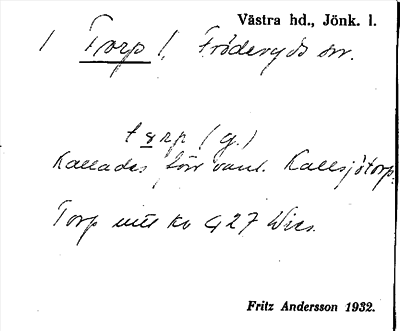 Västra hd., Jönk. l.
/ Torp /. Fröderyds sn.
tarp (g.)
Kallades förr vanl. Kallsjötorp.
Torp mtl kv 427 Wics.
Fritz Andersson 1932.